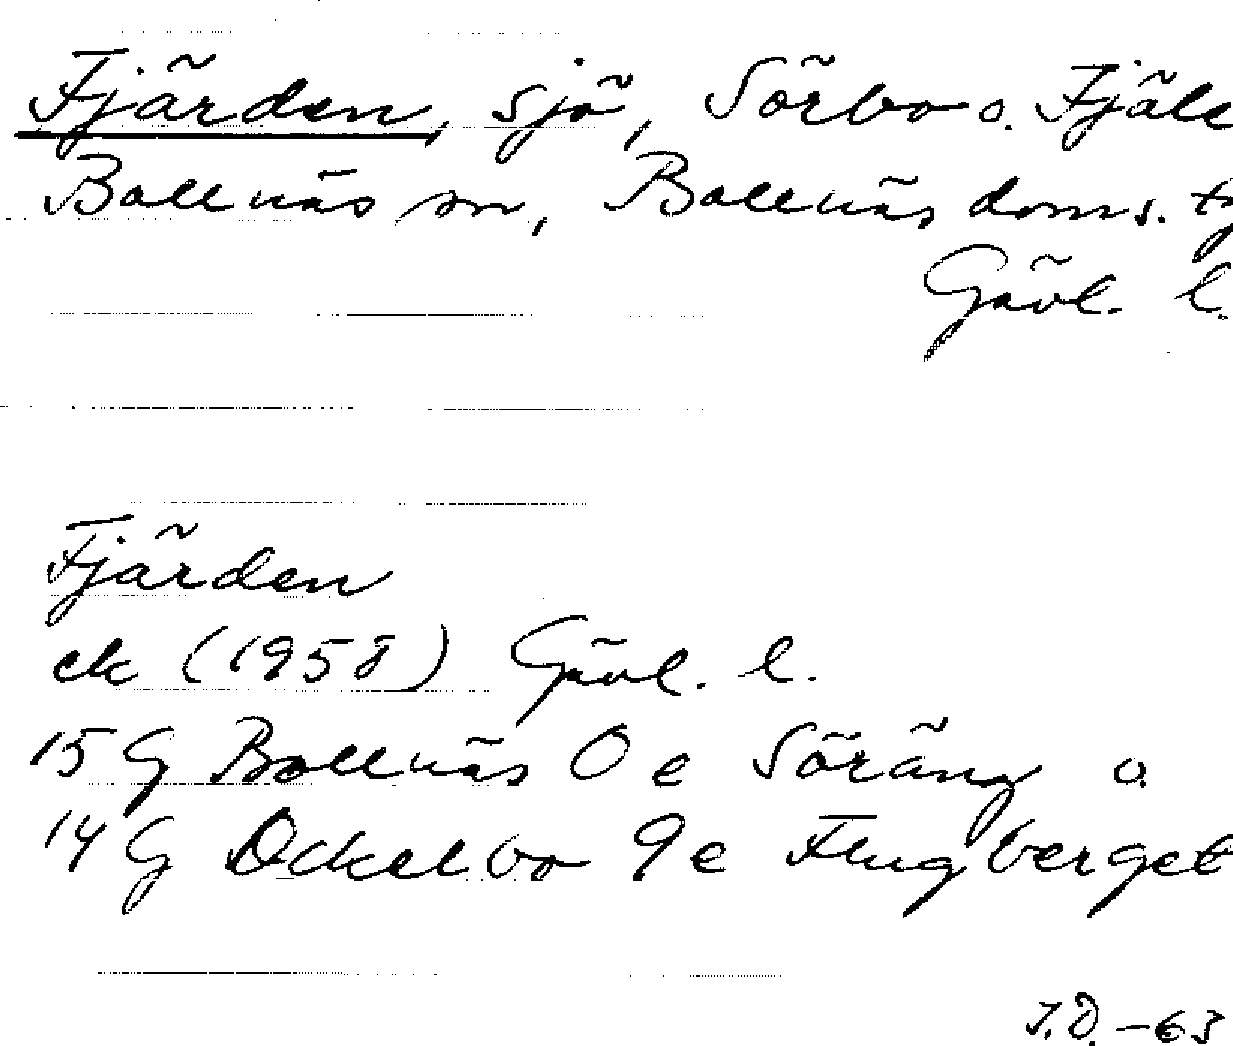 Fjärden, sjö, Sörbo o. Fjäle
Bollnäs sn, Bollnäs doms. tg
Gävl. l.
Fjärden
ek (1958) Gävl. l.
15 G Bollnäs 0 e Söräng o.
14 G Ockelbo 9 e Flugberget
J.Ö. -63